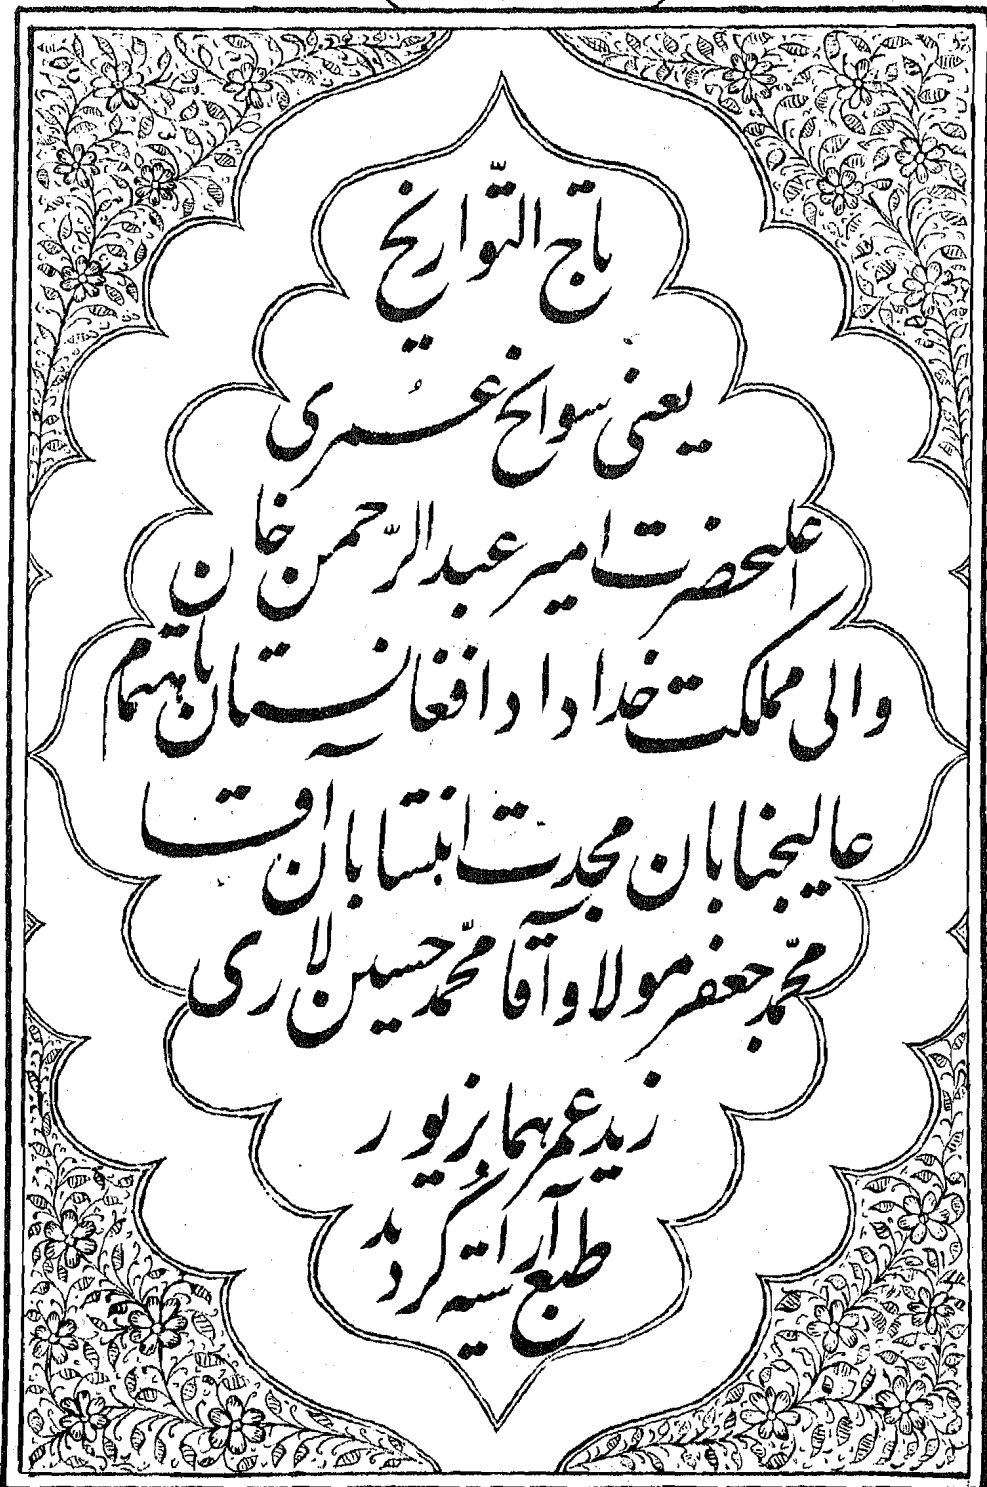 تاج التّواریخ
یعنی سوانح عُمری
اعلیحضرت امیر عبدالرّحمن خان
والی مملکت خداداد افغانستان باهتمام
عالیجنابان مجدت انتسابان آقا
محمّد جعفر مولا و آقا محمّد حسین لاری
زید عمرهما بزیور
طبع آراسته گردید